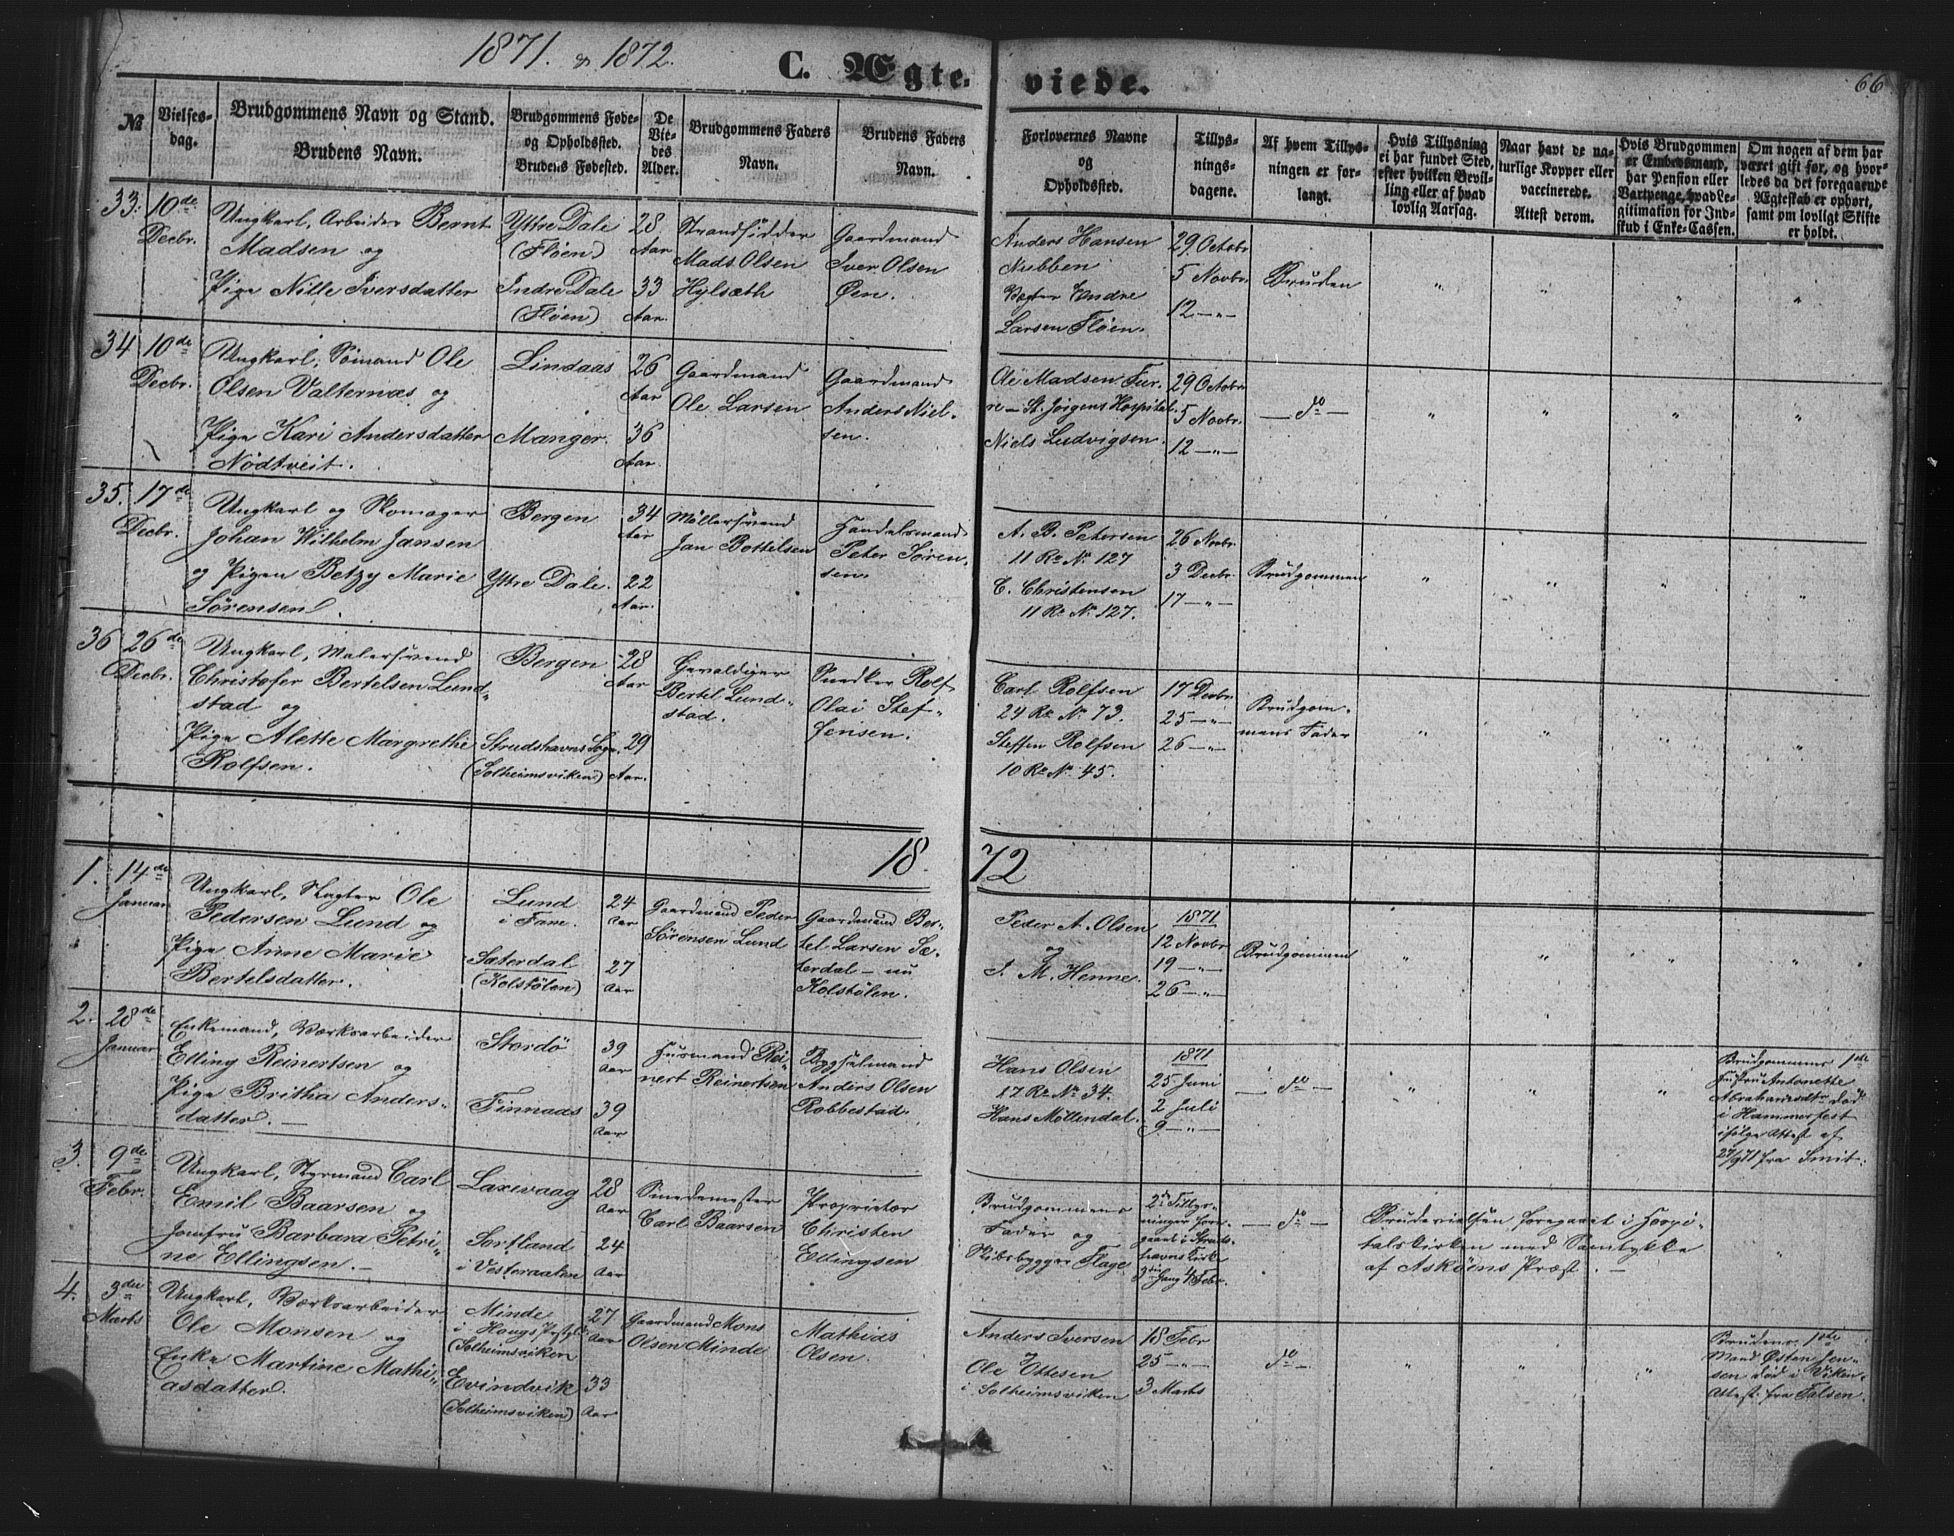 1871. & 1872.
C. Ægteviede.
66
№
Vielsesdag.
Brudgommens Navn og Stand.
Brudens Navn.
Brudgommens Føde- og Opholdssted.
Brudens Fødested.
De Viedes Alder.
Brudgommens Faders Navn.
Brudens Faders Navn.
Forlovernes Navne og Opholdssted.
Tillysningsdagene.
Af hvem Tillysningen er forlangt.
Hvis Tillysning ei har fundet Sted, efter hvilken Bevilling eller af hvad lovlig Aarsag.
Naar havt de naturlige Kopper eller vaccinerede. Attest derom.
Hvis Brudgommen er Embedsmand, har Pension eller Vartpenge, hvad Legitimation for Indskud i Enke-Cassen.
Om nogen af dem har været gift før, og hvorledes da det foregaaende Ægteskab er ophørt, samt om lovligt Skifte er holdt.
33. 10de Decbr.
Ungkarl, Arbeider Bernt
Madsen og
Pige Nille Iversdatter
Yttre Dale
(Fløen)
Indre Dale
(Fløen)
28 Aar
33 Aar.
Strandsidder
Mads Olsen
Hylsæth
Gaardmand
Iver Olsen
Øen.
Anders Hansen
Nubben
Endre
Larsen Fløen.
29 Octobr
5 Novbr.
12 — " —
Bruden
" " " "
34 10de Decbr.
Ungkarl, Sømand Ole
Olsen Valternæs og
Pige Kari Andersdatter
Nødtveit.
Lindaas
Manger.
26 Aar
36 Aar.
Gaardmand
Ole Larsen
Gaardmand
Anders Niel-
sen.
Ole Madsen Fur-
re — St. Jørgens Hospital.
Niels Ludvigsen.
29 Octobr
5 Novbr.
12 — " —
— do —
" " " "
35. 17de Decbr.
Ungkarl og Skomager
Johan Wilhelm Jansen
og Pigen Betzy Marie
Sørensen.
Bergen
Yttre Dale.
34 Aar
22 Aar.
Møllersvend
Jan Bottelsen
Handelsmand
Peter Søren-
sen.
A. B. Petersen
11 Rd. No. 127
C. Christensen
11 Rd. No. 127.
26 Novbr.
3 Decbr.
17 — " —
Brudgommen
" " " "
36 26de Decbr.
Ungkarl, Malersvend
Christofer Bertelsen Lund-
stad og
Pige Alette Margrethe
Rolfsen.
Bergen
Strudshavns Sogn.
(Solheimsviken)
28 Aar
29 Aar.
Gevaldiger
Bertel Lund-
stad.
Snedker Rolf
Olai Stef-
fensen.
Carl Rolfsen
24 Rd. No. 73.
Steffen Rolfsen
10 Rd. No. 45.
17 Decbr.
25 — " —
26 — " —
Brudgom-
mens Fader
" " " "
1872
1. 14de Januar
Ungkarl, Slagter Ole
Pedersen Lund og
Pige Anne Marie
Bertelsdatter.
Lund
i Fane.
Sæterdal
(Kolstølen)
24 Aar
27 Aar
Gaardmand Peder
Sørensen Lund
Gaardmand Ber-
tel Larsen Sæ-
terdal — nu
Kolstølen.
Peder A. Olsen
og
J. M. Henne.
1871
12 Novbr
19 — " —
26 — " —
Brudgommen
" " " "
2. 28de Januar
Enkemand, Værksarbeider
Elling Reinertsen og
Pige Britha Anders-
datter. —
Stordø
Finnaas
39 Aar
39 Aar
Husmand Rei-
nert Reinertsen
Bygselmand
Anders Olsen
Robbestad.
Hans Olsen
17 Rd. No. 34.
Hans Møllendal.
1871
25 Juni
2 Juli
9 — " —
— do —
" " "
Brudgommens 1ste
Hustru Antonette
Abrahamsdtr død
i Hammerfest
ifølge Attest af
27/9 71 fra Smit.
3. 9de Febr.
Ungkarl, Styrmand Carl
Emil Baarsen og
Jomfru Barbara Petri-
ne Ellingsen. —
Laxevaag
Sortland
i Vesteraalen
28 Aar
24 Aar
Smedemester
Carl Baarsen
Proprietær
Christen
Ellingsen
Brudgommens
Fader og
Skibsbygger Flage
2de Tillys-
ninger fore-
gaaet i Struds-
havns Kirke
3die Gang 4 Febr.
— do —
Brudevielsen foregaaet i Hospi-
talskirken med Samtykke
af Askøens Præst. —
"
4. 3die Marts
Ungkarl, Værksarbeider
Ole Monsen og
Enke Martine Mathi-
asdatter.
Minde
i Hougs Præstgj.
(Solheimsviken
Evindvik
(Solheimsviken)
27 Aar
33 Aar
Gaardmand Mons
Olsen Minde
Mathias
Olsen.
Anders Iversen
Ole Ottesen
i Solheimsviken
18 Febr
25 — " —
3 Marts
do —
" " "
Brudens 1ste
Mand Østen Jen-
sen død i Viken.
Attest fra Falsen.